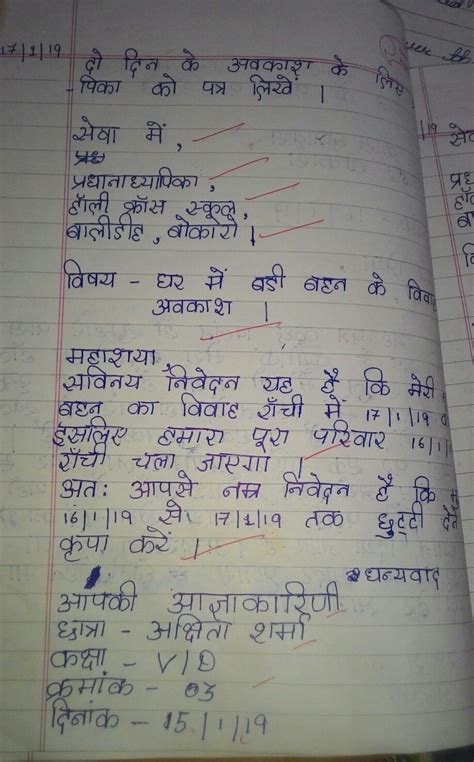 17/1/19
दो दिन के अवकाश के लिए
-पिका को पत्र लिखें ।
सेवा में,
प्रधानाध्यापिका,
हॉली क्रॉस स्कूल,
बालीडीह, बोकारो ।
विषय - घर में बडी बहन के
अवकाश ।
महाशया,
सविनय निवेदन यह है कि मेरी
बहन का विवाह राँची में 17/1/19
इसलिए हमारा पूरा परिवार 16/1/
राँची चला जाएगा ।
अतः आपसे नम्र निवेदन है कि
16/1/19 से 17/1/19 तक छुट्टी देने
कृपा करें ।
धन्यवाद
आपकी आज्ञाकारिणी
छात्रा - अक्षिता शर्मा
कक्षा - V/D
क्रमांक - 03
दिनांक - 15/1/19